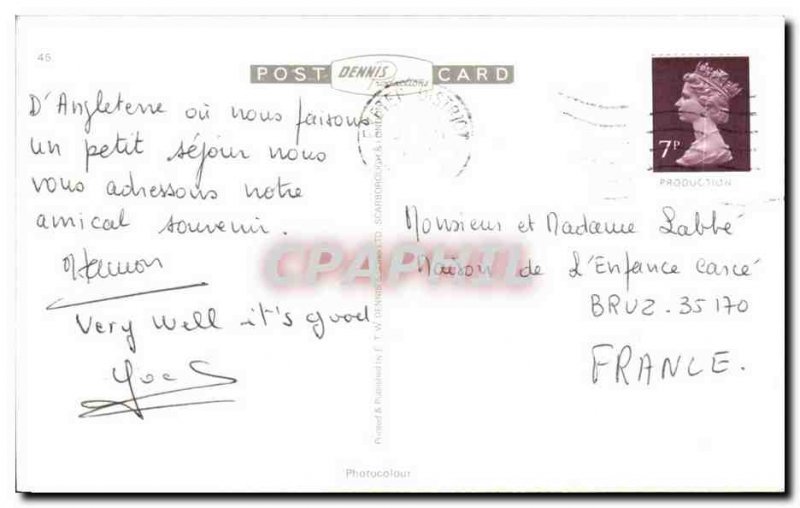 46.
POST DENNIS Productions CARD
D'Angleterre où nous faisons
un petit séjour nous
vous adressons notre
amical souvenir.
Very well it's good
7P
PRODUCTION
Monsieur et Madame Labbé
Maison de L'Enfance
BRUZ. 35170
FRANCE.
CPAPHIL
Printed & Published by E. T. W. DENNIS LTD. SCARBOROUGH &
Photocolour